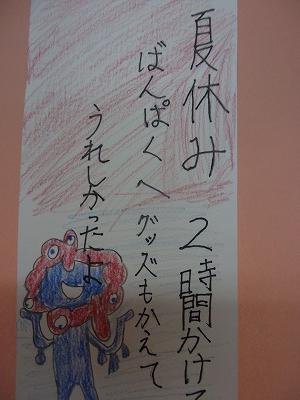 夏休み 2時間かけて
ばんぱくへ グッズもかえて
うれしかったよ